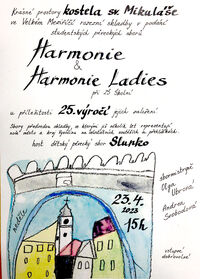 Krásné prostory kostela sv. Mikuláše
ve Velkém Meziříčí rozezní skladby v podání
studentských pěveckých sborů
Harmonie
&
Harmonie Ladies
při ZŠ Školní
u příležitosti 25. výročí jejich založení
Sbory přednesou skladby, se kterými již několik let reprezentují
naše město a kraj Vysočina na celostátních soutěžích a přehlídkách.
host dětský pěvecký sbor Slunko
sbormistryně
Olga
Ubrová
Andrea
Svobodová
neděle
23.4.
2023
15h
vstupné
dobrovolné